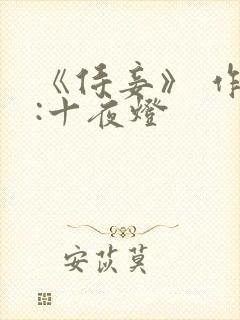 《侯妾》 作
:十夜燈
安苡莫